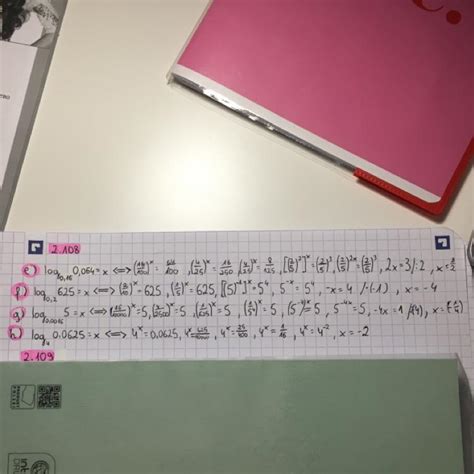 c.
eno
2.108
e) log₀,₁₆ 0,064=x ⟺ (16/100)ˣ = 64/100, (4/25)ˣ = 16/250, (4/25)ˣ = 8/125, [(2/5)²]ˣ = (2/5)³, (2/5)²ˣ = (2/5)³, 2x=3/:2, x=3/2
f) log₀,₂ 625=x ⟺ (2/10)ˣ=625, (1/5)ˣ=625, [(5)⁻¹]ˣ=5⁴, 5⁻ˣ=5⁴, -x=4 /·(-1), x=-4
g) log₀.₀₀₁₆ 5=x ⟺ =5, =5, =5, =5, =5, 5⁻⁴ˣ=5, -4x=1
h) log₄ 0.0625=x ⟺ 4ˣ=0.0625, 4ˣ=625/10000, 4ˣ=25/400, 4ˣ=1/16, 4ˣ=4⁻², x=-2
2.109
int